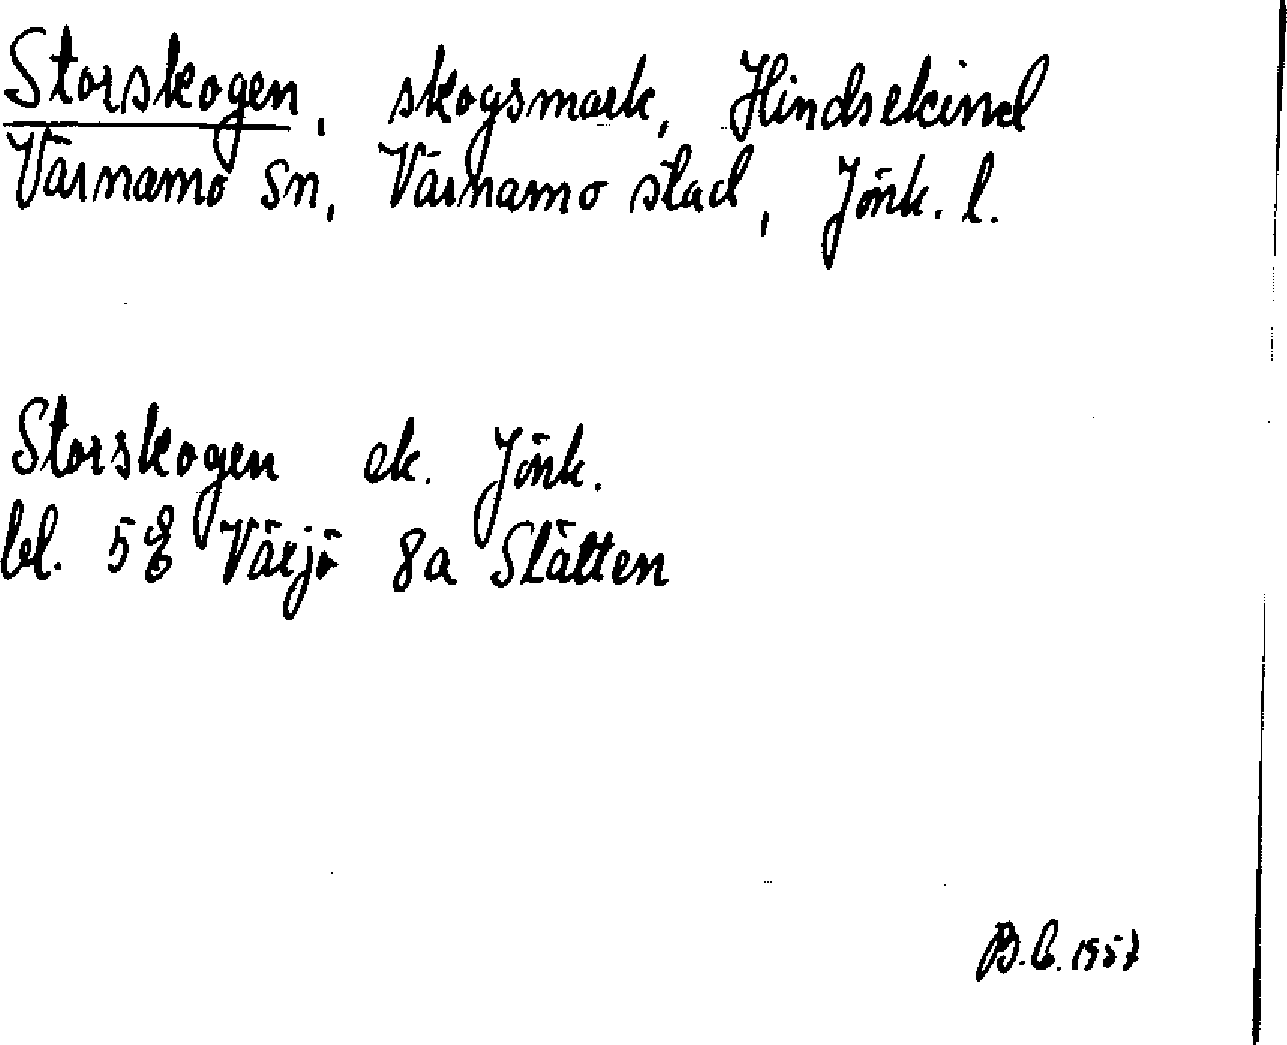 Storskogen, skogsmark, Hindsekind
Värnamo sn, Värnamo stad, Jönk. l.
Storskogen ek. Jönk.
bl. 5E Växjö 8a Slätten
B.C. 1957